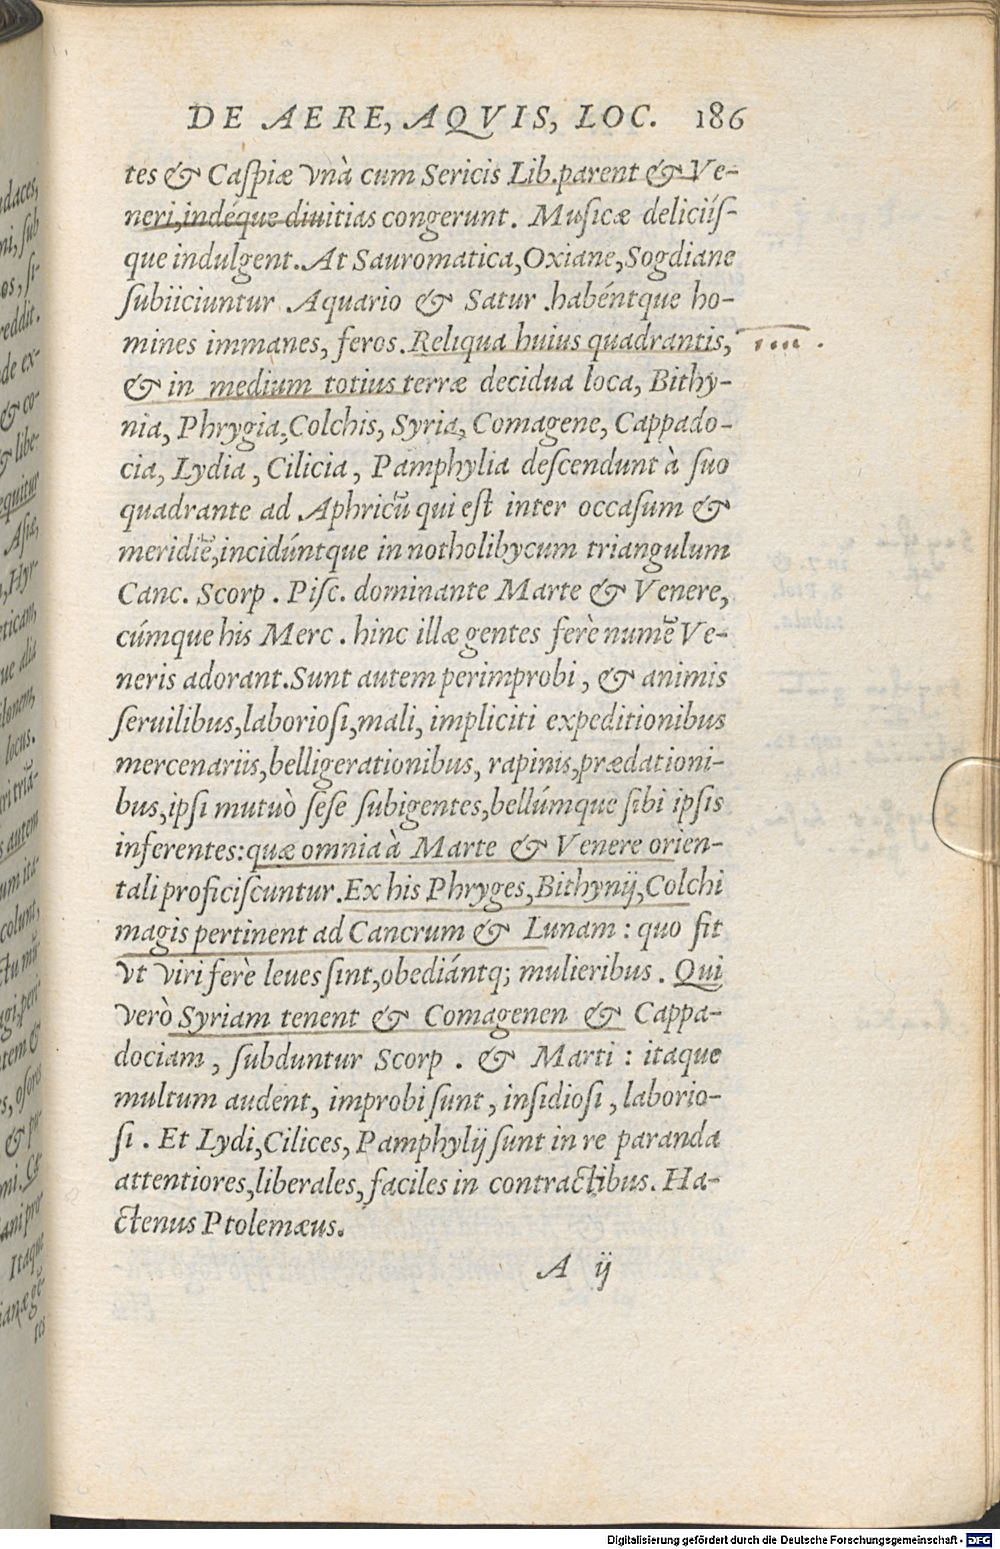 DE AERE, AQVIS, LOC. 186
tes & Caſpiæ vnà cum Sericis Lib. parent & Ve-
neri, indéque diuitias congerunt. Muſicæ deliciíſ-
que indulgent. At Sauromatica, Oxiane, Sogdiane
ſubiiciuntur Aquario & Satur. habéntque ho-
mines immanes, feros. Reliqua huius quadrantis,
& in medium totius terræ decidua loca, Bithy-
nia, Phrygia, Colchis, Syria, Comagene, Cappado-
cia, Lydia, Cilicia, Pamphylia deſcendunt à ſuo
quadrante ad Aphricũ qui eſt inter occaſum &
meridiẽ, incidúntque in notholibycum triangulum
Canc. Scorp. Piſc. dominante Marte & Venere,
cúmque his Merc. hinc illæ gentes ferè numẽ Ve-
neris adorant. Sunt autem perimprobi, & animis
ſeruilibus, laborioſi, mali, impliciti expeditionibus
mercenariis, belligerationibus, rapinis, prædationi-
bus, ipſi mutuò ſeſe ſubigentes, bellúmque ſibi ipſis
inferentes: quæ omnia à Marte & Venere orien-
tali proficiſcuntur. Ex his Phryges, Bithynij, Colchi
magis pertinent ad Cancrum & Lunam: quo fit
vt viri ferè leues ſint, obediántq; mulieribus. Qui
verò Syriam tenent & Comagenen & Cappa-
dociam, ſubduntur Scorp. & Marti: itaque
multum audent, improbi ſunt, inſidioſi, laborio-
ſi. Et Lydi, Cilices, Pamphylij ſunt in re paranda
attentiores, liberales, faciles in contractibus. Ha-
ctenus Ptolemæus.
A ij
Digitalisierung gefördert durch die Deutsche Forschungsgemeinschaft - DFG